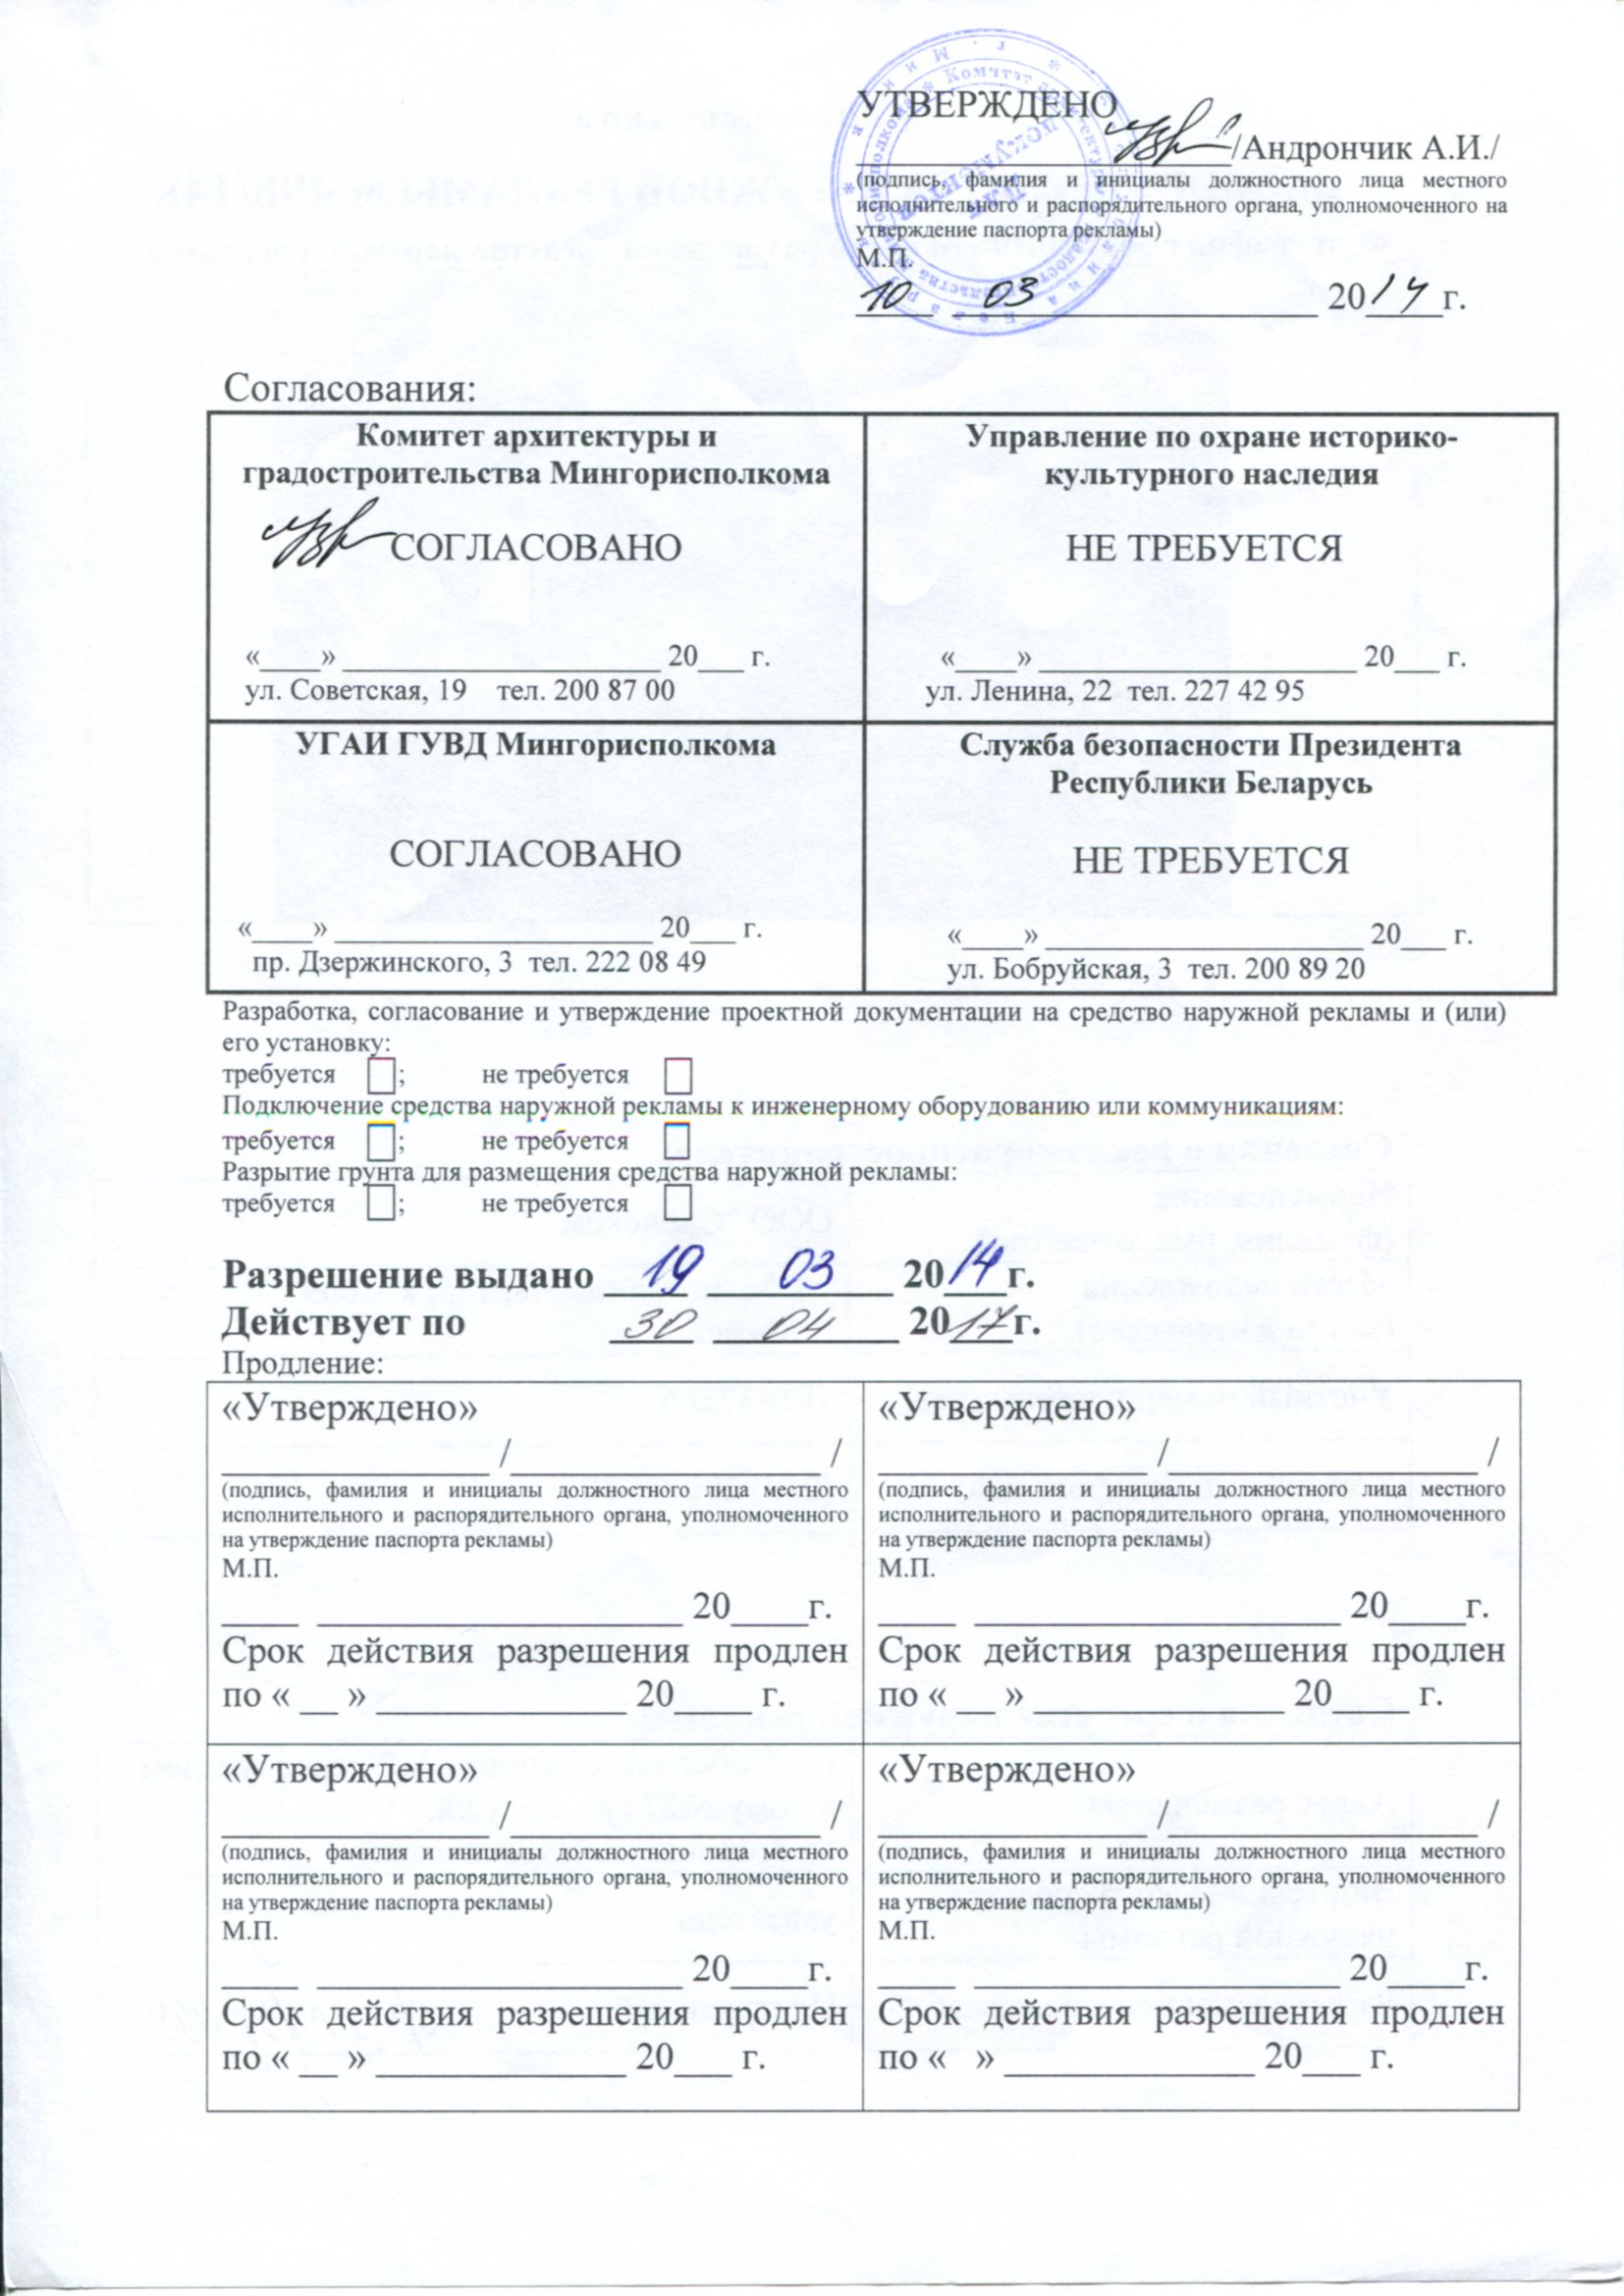 УТВЕРЖДЕНО
/Андрончик А.И./
(подпись, фамилия и инициалы должностного лица местного
исполнительного и распорядительного органа, уполномоченного на
утверждение паспорта рекламы)
М.П.
10 03 2014г.
Согласования:
Комитет архитектуры и
градостроительства Мингорисполкома
СОГЛАСОВАНО
«____» _____________________ 20___ г.
ул. Советская, 19 тел. 200 87 00
Управление по охране историко-
культурного наследия
НЕ ТРЕБУЕТСЯ
«____» _____________________ 20___ г.
ул. Ленина, 22 тел. 227 42 95
УГАИ ГУВД Мингорисполкома
СОГЛАСОВАНО
«____» _____________________ 20___ г.
пр. Дзержинского, 3 тел. 222 08 49
Служба безопасности Президента
Республики Беларусь
НЕ ТРЕБУЕТСЯ
«____» _____________________ 20___ г.
ул. Бобруйская, 3 тел. 200 89 20
Разработка, согласование и утверждение проектной документации на средство наружной рекламы и (или)
его установку:
требуется ; не требуется
Подключение средства наружной рекламы к инженерному оборудованию или коммуникациям:
требуется ; не требуется
Разрытие грунта для размещения средства наружной рекламы:
требуется ; не требуется
Разрешение выдано 19 03 2014г.
Действует по 30 04 2017г.
Продление:
«Утверждено»
______________ /________________ /
(подпись, фамилия и инициалы должностного лица местного
исполнительного и распорядительного органа, уполномоченного
на утверждение паспорта рекламы)
М.П.
____ ___________________ 20____г.
Срок действия разрешения продлен
по « __ » _____________ 20____ г.
«Утверждено»
______________ /________________ /
(подпись, фамилия и инициалы должностного лица местного
исполнительного и распорядительного органа, уполномоченного
на утверждение паспорта рекламы)
М.П.
____ ___________________ 20____г.
Срок действия разрешения продлен
по « __ » _____________ 20____ г.
«Утверждено»
______________ /________________ /
(подпись, фамилия и инициалы должностного лица местного
исполнительного и распорядительного органа, уполномоченного
на утверждение паспорта рекламы)
М.П.
____ ___________________ 20____г.
Срок действия разрешения продлен
по « __ » _____________ 20___ г.
«Утверждено»
______________ /________________ /
(подпись, фамилия и инициалы должностного лица местного
исполнительного и распорядительного органа, уполномоченного
на утверждение паспорта рекламы)
М.П.
____ ___________________ 20____г.
Срок действия разрешения продлен
по « » _____________ 20___ г.